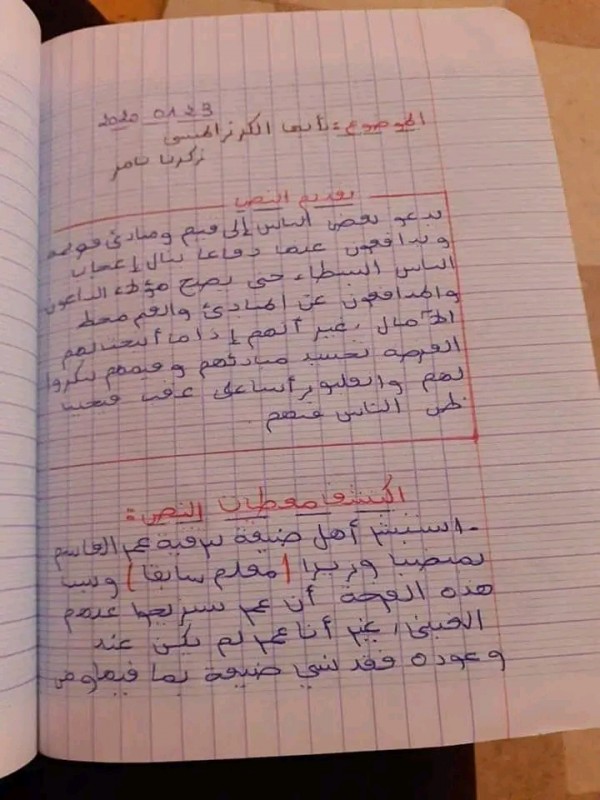 2020 01 23
الموضوع: يا أيها الكرز المنسي
زكريا تامر
تقديم النص
يدعو بعض الناس إلى قيم ومبادئ
ويدافعون عنها دفاعا ينال إعجاب
الناس البسطاء حتى يصبح هؤلاء الداعون
والمدافعون عن المبادئ والقيم محط
الآمال، غير أنهم إذا ما أتيحت لهم
الفرصة تجسيد مبادئهم وقيمهم تنكروا
لهم وانقلبوا رأسا على عقب فخيبت
ظن الناس فيهم
أكتشف معطيات النص:
- استبشر أهل ضيعة عمر القاسم
بمنصب وزيرا (معلم سابقا) وسبب
هذه الفرحة أن عمر سيزيح عنهم
الغبن، غير أن عمر لم يكن عند
وعوده فقد نسي ضيعة بما فيها ومن